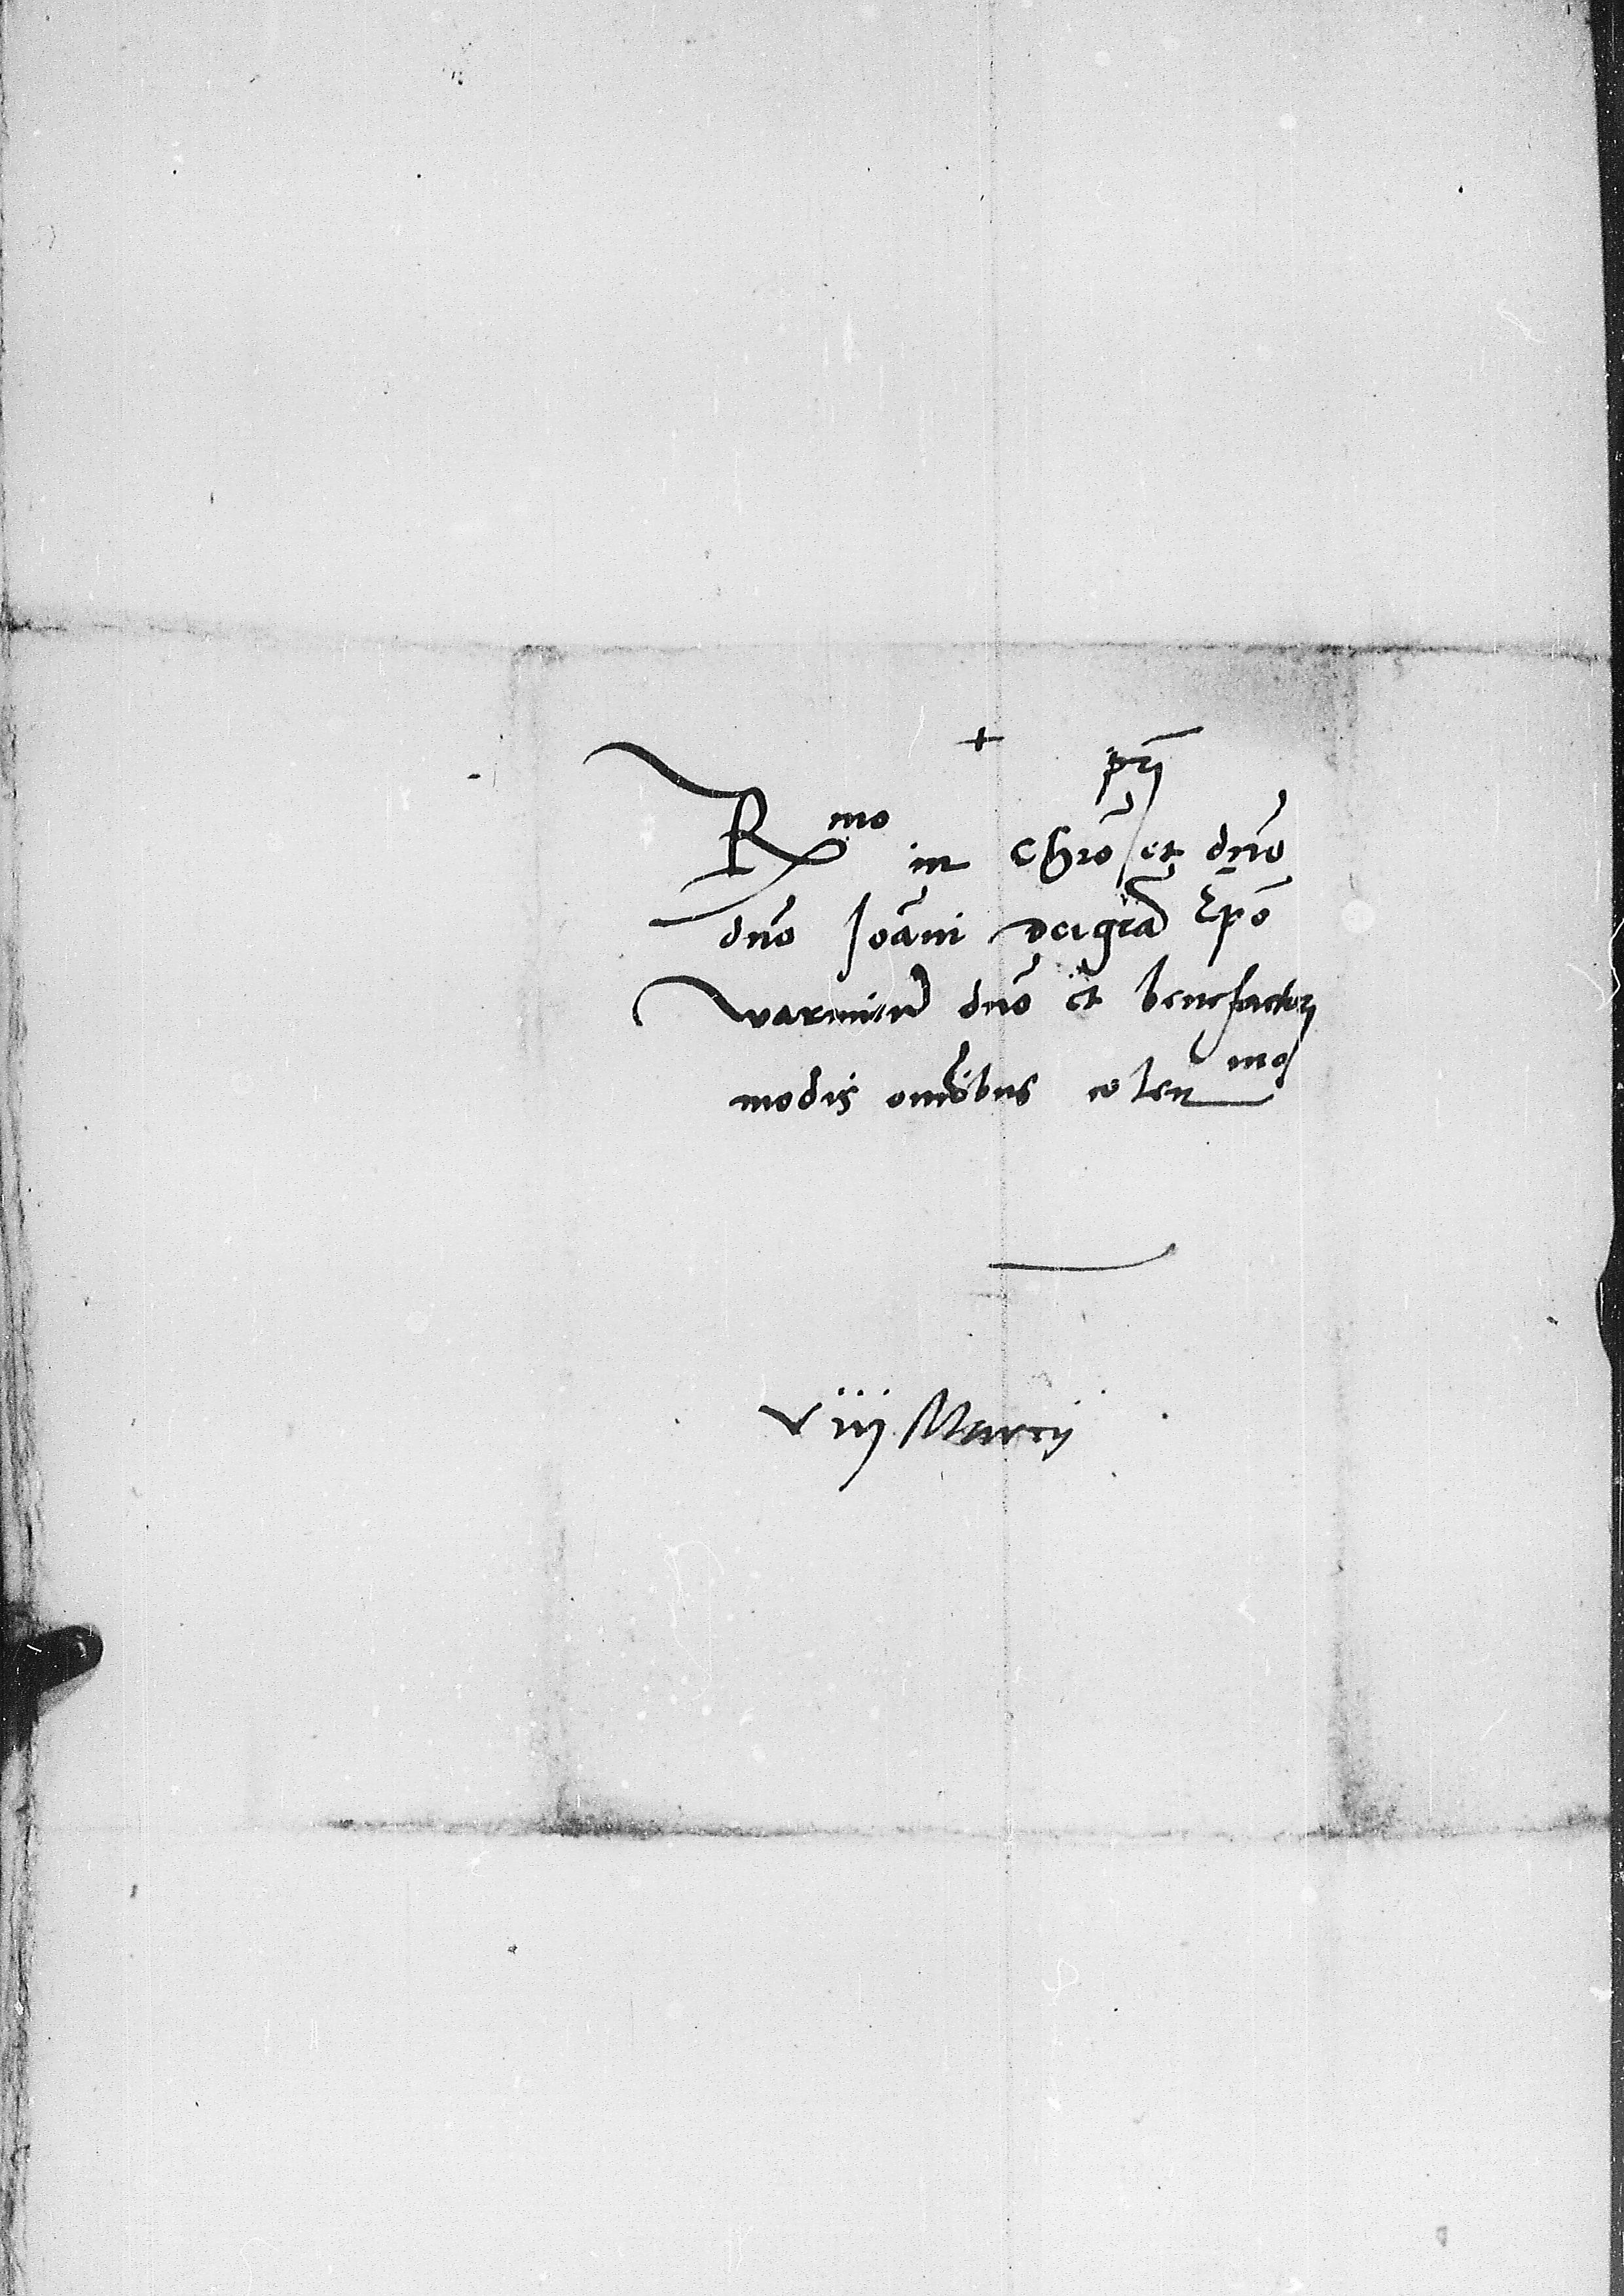 +
pri
Rmo in Chro et dno
dno Ioani dei gra Epo
warmien dno et benefactori
modis omibus colenmo
viij Marcij